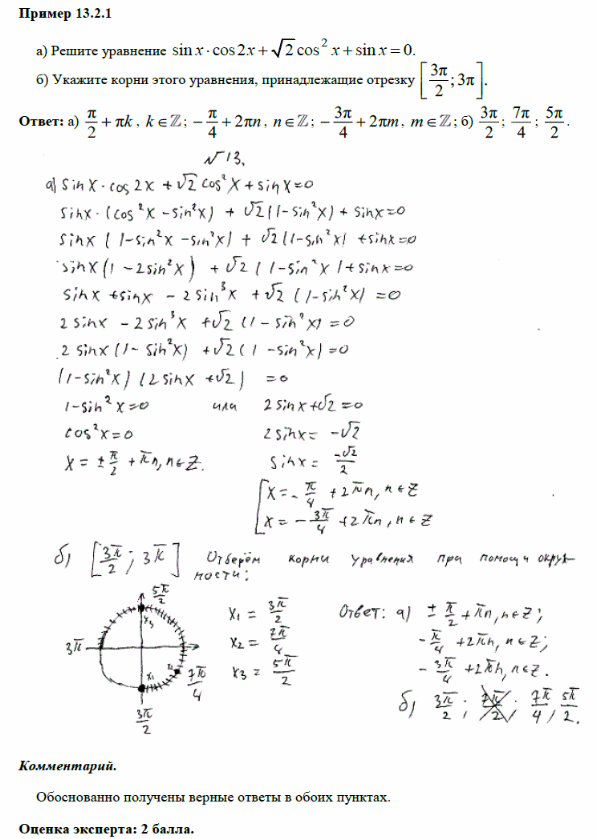 Пример 13.2.1
а) Решите уравнение sin x · cos 2x + √2 cos² x + sin x = 0.
б) Укажите корни этого уравнения, принадлежащие отрезку [3π/2; 3π].
Ответ: а) π/2 + πk, k ∈ ℤ; −π/4 + 2πn, n ∈ ℤ; −3π/4 + 2πm, m ∈ ℤ; б) 3π/2; 7π/4; 5π/2.
№13.
а) sin x · cos 2x + √2 cos² x + sin x = 0
sin x · (cos² x − sin² x) + √2 (1 − sin² x) + sin x = 0
sin x (1 − sin² x − sin² x) + √2 (1 − sin² x) + sin x = 0
sin x (1 − 2 sin² x) + √2 (1 − sin² x) + sin x = 0
sin x + sin x − 2 sin³ x + √2 (1 − sin² x) = 0
2 sin x − 2 sin³ x + √2 (1 − sin² x) = 0
2 sin x (1 − sin² x) + √2 (1 − sin² x) = 0
(1 − sin² x) (2 sin x + √2) = 0
1 − sin² x = 0 или 2 sin x + √2 = 0
cos² x = 0 2 sin x = −√2
x = ± π/2 + πn, n ∈ Z. sin x = −√2/2
[ x = − π/4 + 2πn, n ∈ Z
x = − 3π/4 + 2πn, n ∈ Z
б) [3π/2; 3π] Отберём корни уравнения при помощи окруж-
ности:
5π/2
x₃
3π
x₁
x₂
7π/4
3π/2
x₁ = 3π/2
x₂ = 7π/4
x₃ = 5π/2
Ответ: а) ± π/2 + πn, n ∈ Z;
− π/4 + 2πn, n ∈ Z;
− 3π/4 + 2πn, n ∈ Z.
б) 3π/2; 7π/4; 5π/2.
Комментарий.
Обоснованно получены верные ответы в обоих пунктах.
Оценка эксперта: 2 балла.